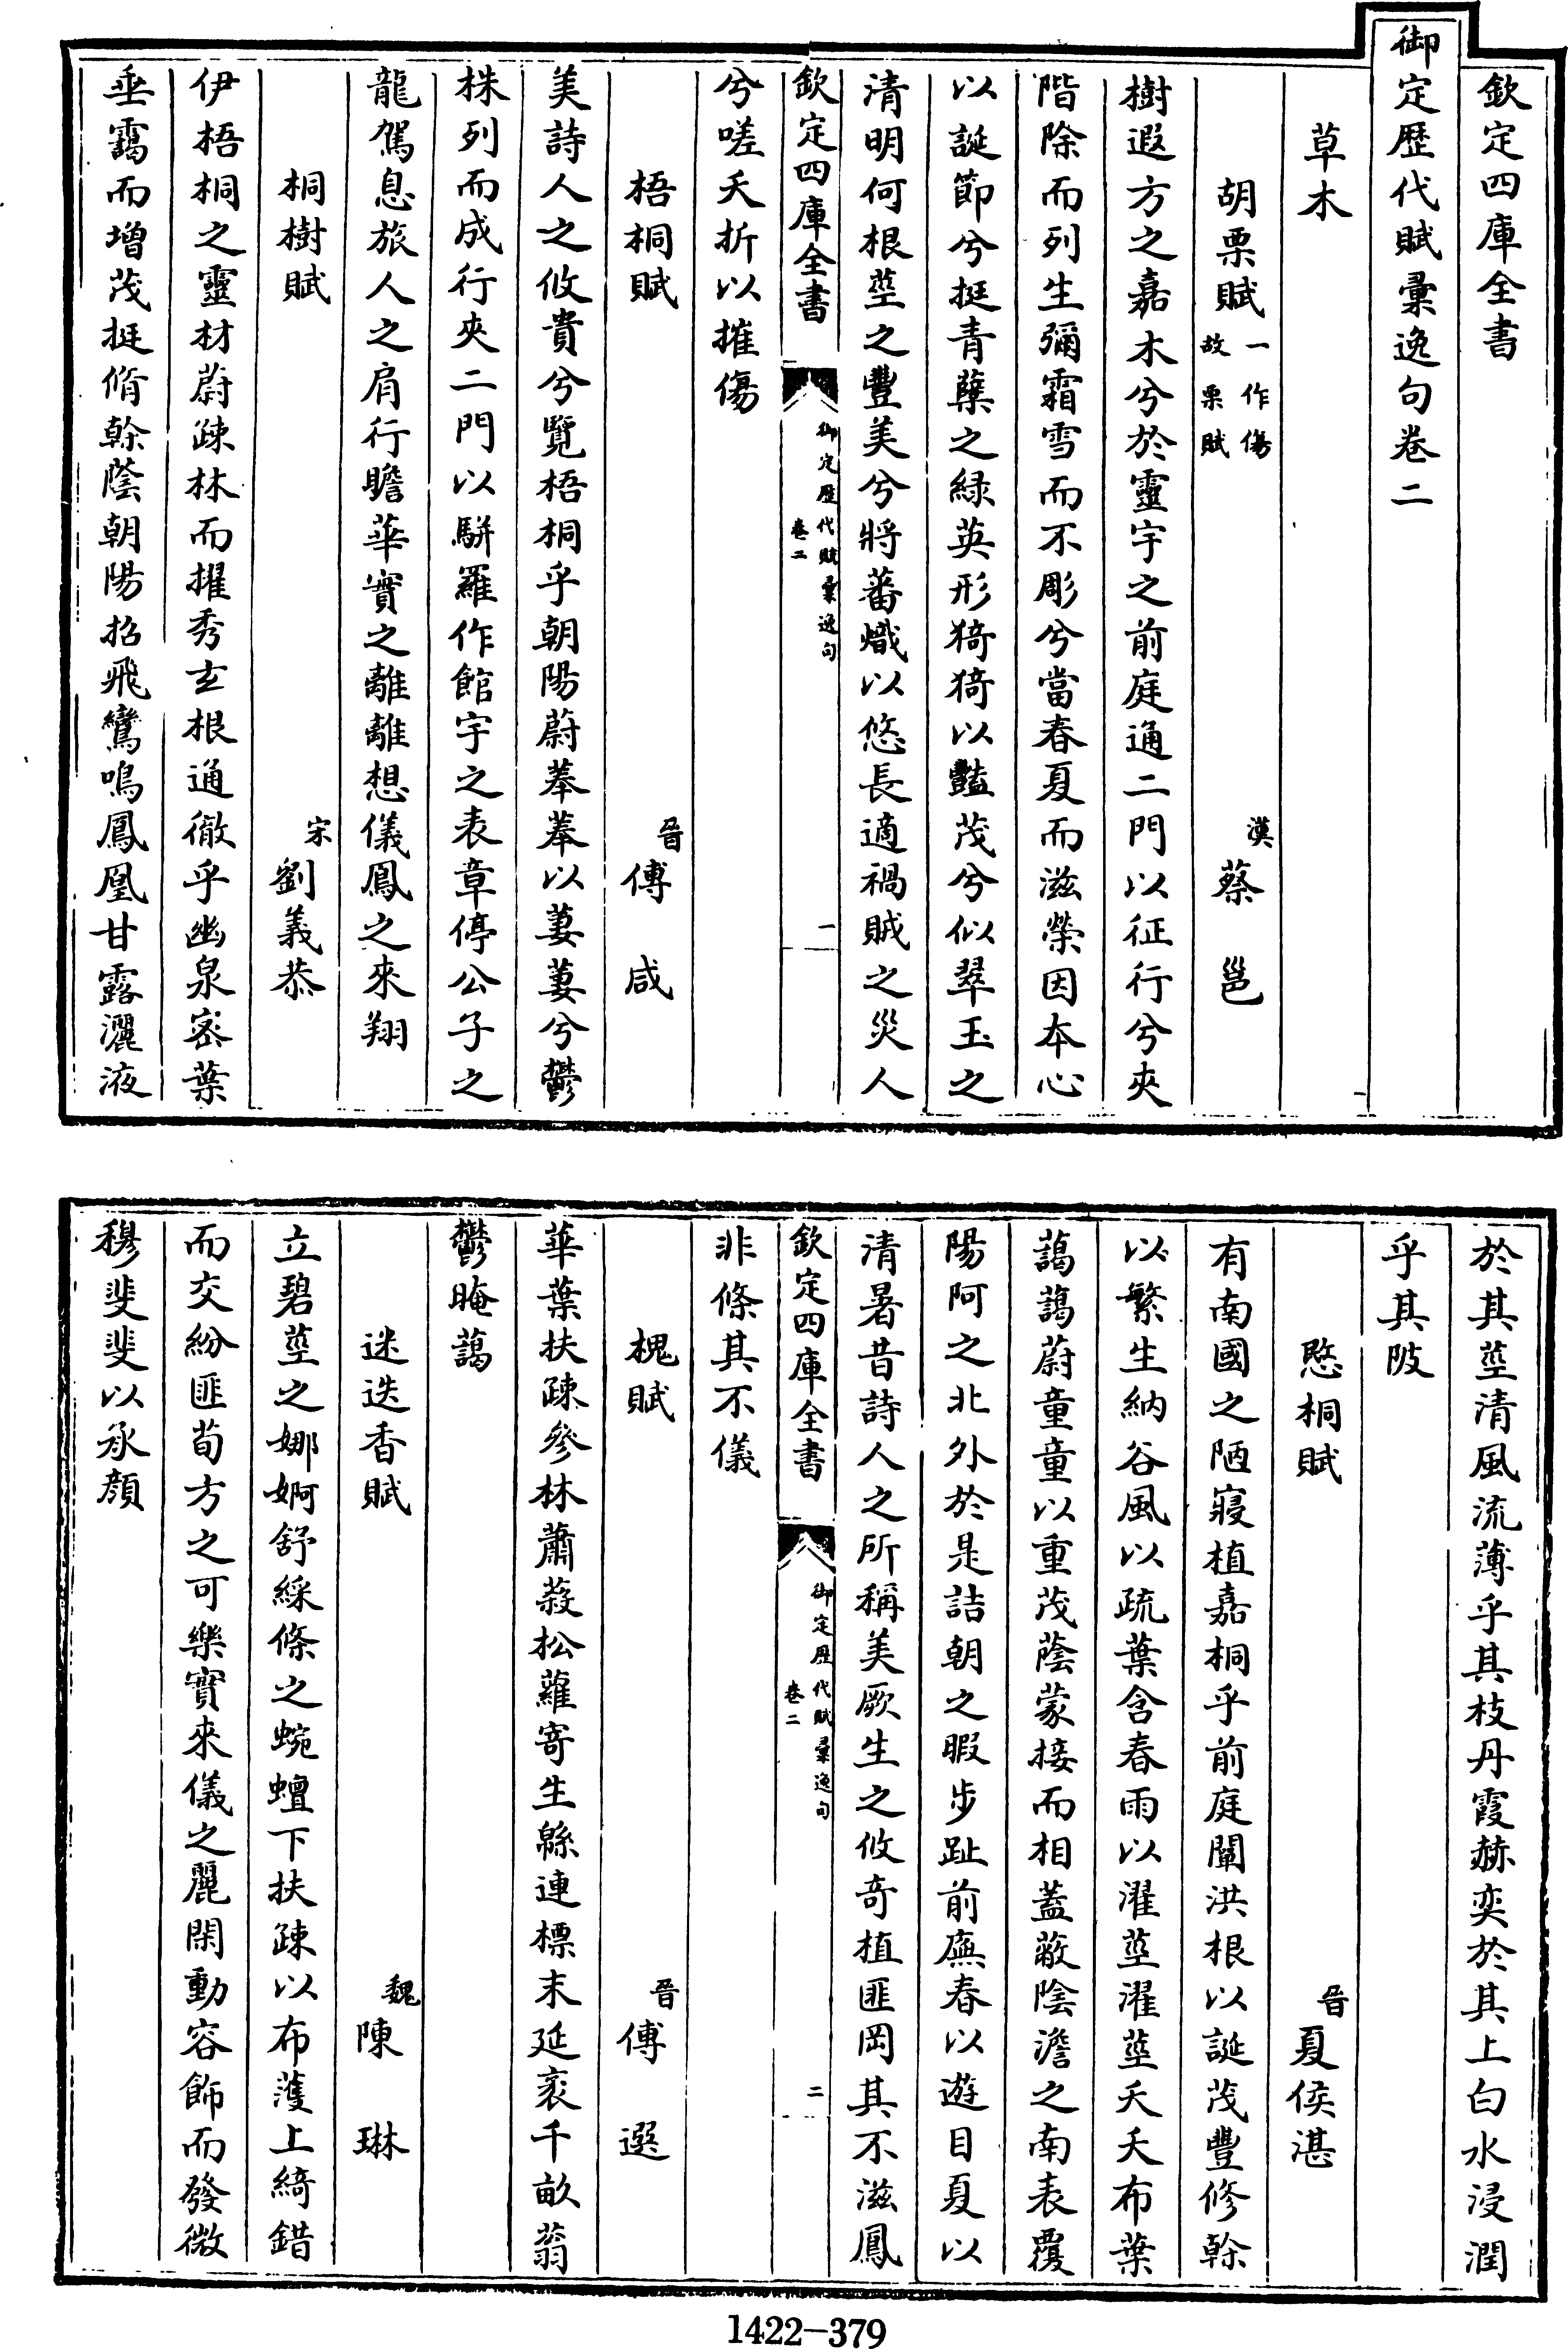 欽定四庫全書
御定歴代賦彚逸句卷二
草木
胡栗賦一作傷故栗賦 漢蔡邕
樹遐方之嘉木兮於靈宇之前庭通二門以征行兮夾
階除而列生彌霜雪而不彫兮當春夏而滋榮因本心
以誕節兮挺青蘖之緑英形猗猗以豔茂兮似翠玉之
清明何根莖之豐美兮將蕃熾以悠長適禍賊之災人
欽定四庫全書 御定歴代賦彚逸句卷二 一
兮嗟夭折以摧傷
梧桐賦 晉傅咸
美詩人之攸貴兮覽梧桐乎朝陽蔚菶菶以萋萋兮鬱
株列而成行夾二門以駢羅作館宇之表章停公子之
龍駕息旅人之肩行瞻華實之離離想儀鳳之來翔
桐樹賦 宋劉義恭
伊梧桐之靈材蔚疎林而擢秀玄根通徹乎幽泉宻葉
垂靄而增茂挺脩榦蔭朝陽招飛鸞鳴鳳凰甘露灑液
於其莖清風流薄乎其枝丹霞赫奕於其上白水浸潤
乎其陂
愍桐賦 晉夏侯湛
有南國之陋寢植嘉桐乎前庭闡洪根以誕茂豐修榦
以繁生納谷風以疏葉含春雨以濯莖濯莖夭夭布葉
藹藹蔚童童以重茂蔭蒙接而相蓋蔽陰澹之南表覆
陽阿之北外於是詰朝之暇步趾前廡春以遊目夏以
清暑昔詩人之所稱美厥生之攸奇植匪岡其不滋鳳
欽定四庫全書 御定歴代賦彚逸句卷二 二
非條其不儀
槐賦 晉傅選
華葉扶疎參林蕭蔱松蘿寄生緜連標末延袤千畝蓊
鬱晻藹
迷迭香賦 魏陳琳
立碧莖之婀娜舒綵條之蜿蟺下扶疎以布濩上綺錯
而交紛匪荀方之可樂實來儀之麗閑動容飾而發微
穆斐斐以承顔
1422-379